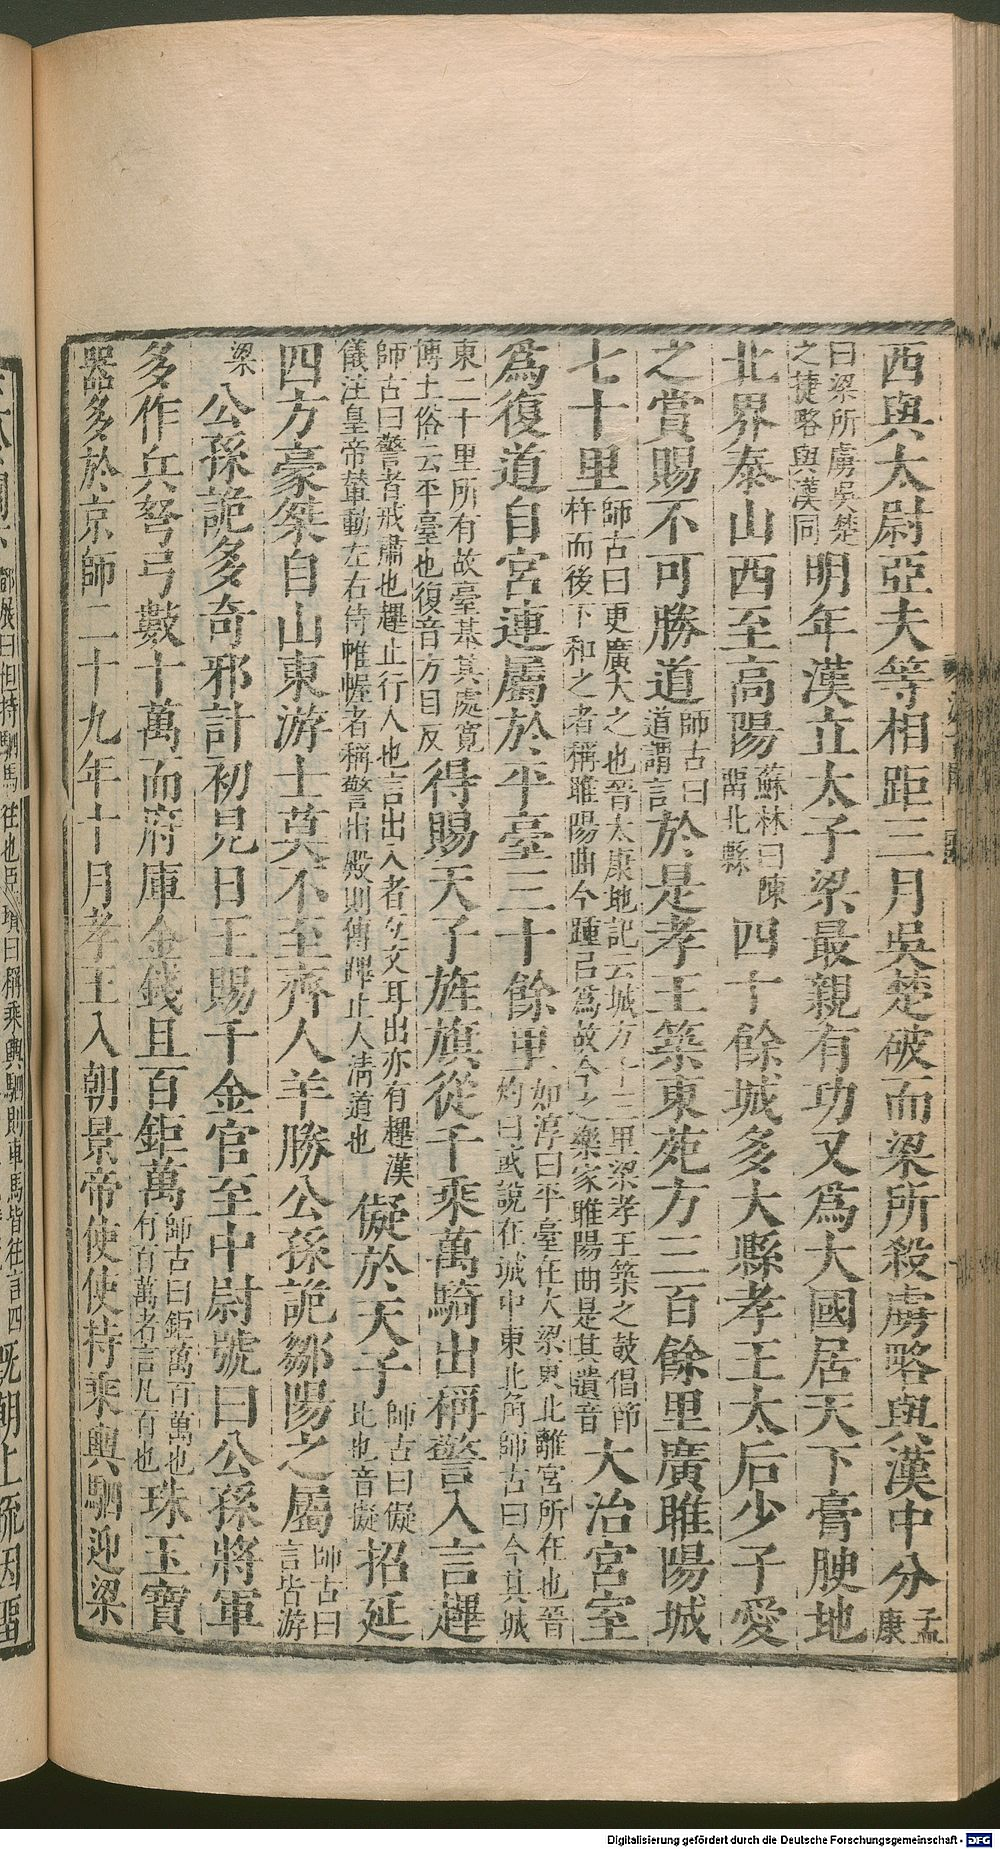 西與太尉亞夫等相距三月吳楚破而梁所殺虜略與漢中分孟康
曰梁所虜吳楚之捷略與漢同明年漢立太子梁最親有功又爲大國居天下膏腴地
北界泰山西至高陽蘇林曰陳留北縣四十餘城多大縣孝王太后少子愛
之賞賜不可勝道師古曰道謂言於是孝王築東苑方三百餘里廣睢陽城
七十里師古曰更廣大之也晉太康地記云城方十三里梁孝王築之鼓倡節杵而後下和之者稱睢陽曲今踵以爲故今之樂家睢陽曲是其遺音大治宮室
爲復道自宮連屬於平臺三十餘里如淳曰平臺在大梁東北離宮所在也晉灼曰或說在城中東北角師古曰今其城
東二十里所有故臺基其處寬博土俗云平臺也復音方目反得賜天子旌旗從千乘萬騎出稱警入言趩
師古曰警者戒肅也趩止行人也言出入者互文耳出亦有趩漢儀注皇帝輦動左右侍帷幄者稱警出殿則傳蹕止人淸道也儗於天子師古曰儗比也音擬招延
四方豪桀自山東游士莫不至齊人羊勝公孫詭鄒陽之屬師古曰言皆游
梁公孫詭多奇邪計初見日王賜千金官至中尉號曰公孫將軍
多作兵弩弓數十萬而府庫金錢且百鉅萬師古曰鉅萬百萬也有百萬者言凡有也珠玉寶
器多於京師二十九年十月孝王入朝景帝使使持乘輿駟迎梁
曰相持駟馬往也臣瓚曰稱乘輿駟則車馬皆往言四旣朝上疏因留
Digitalisierung gefördert durch die Deutsche Forschungsgemeinschaft - DFG